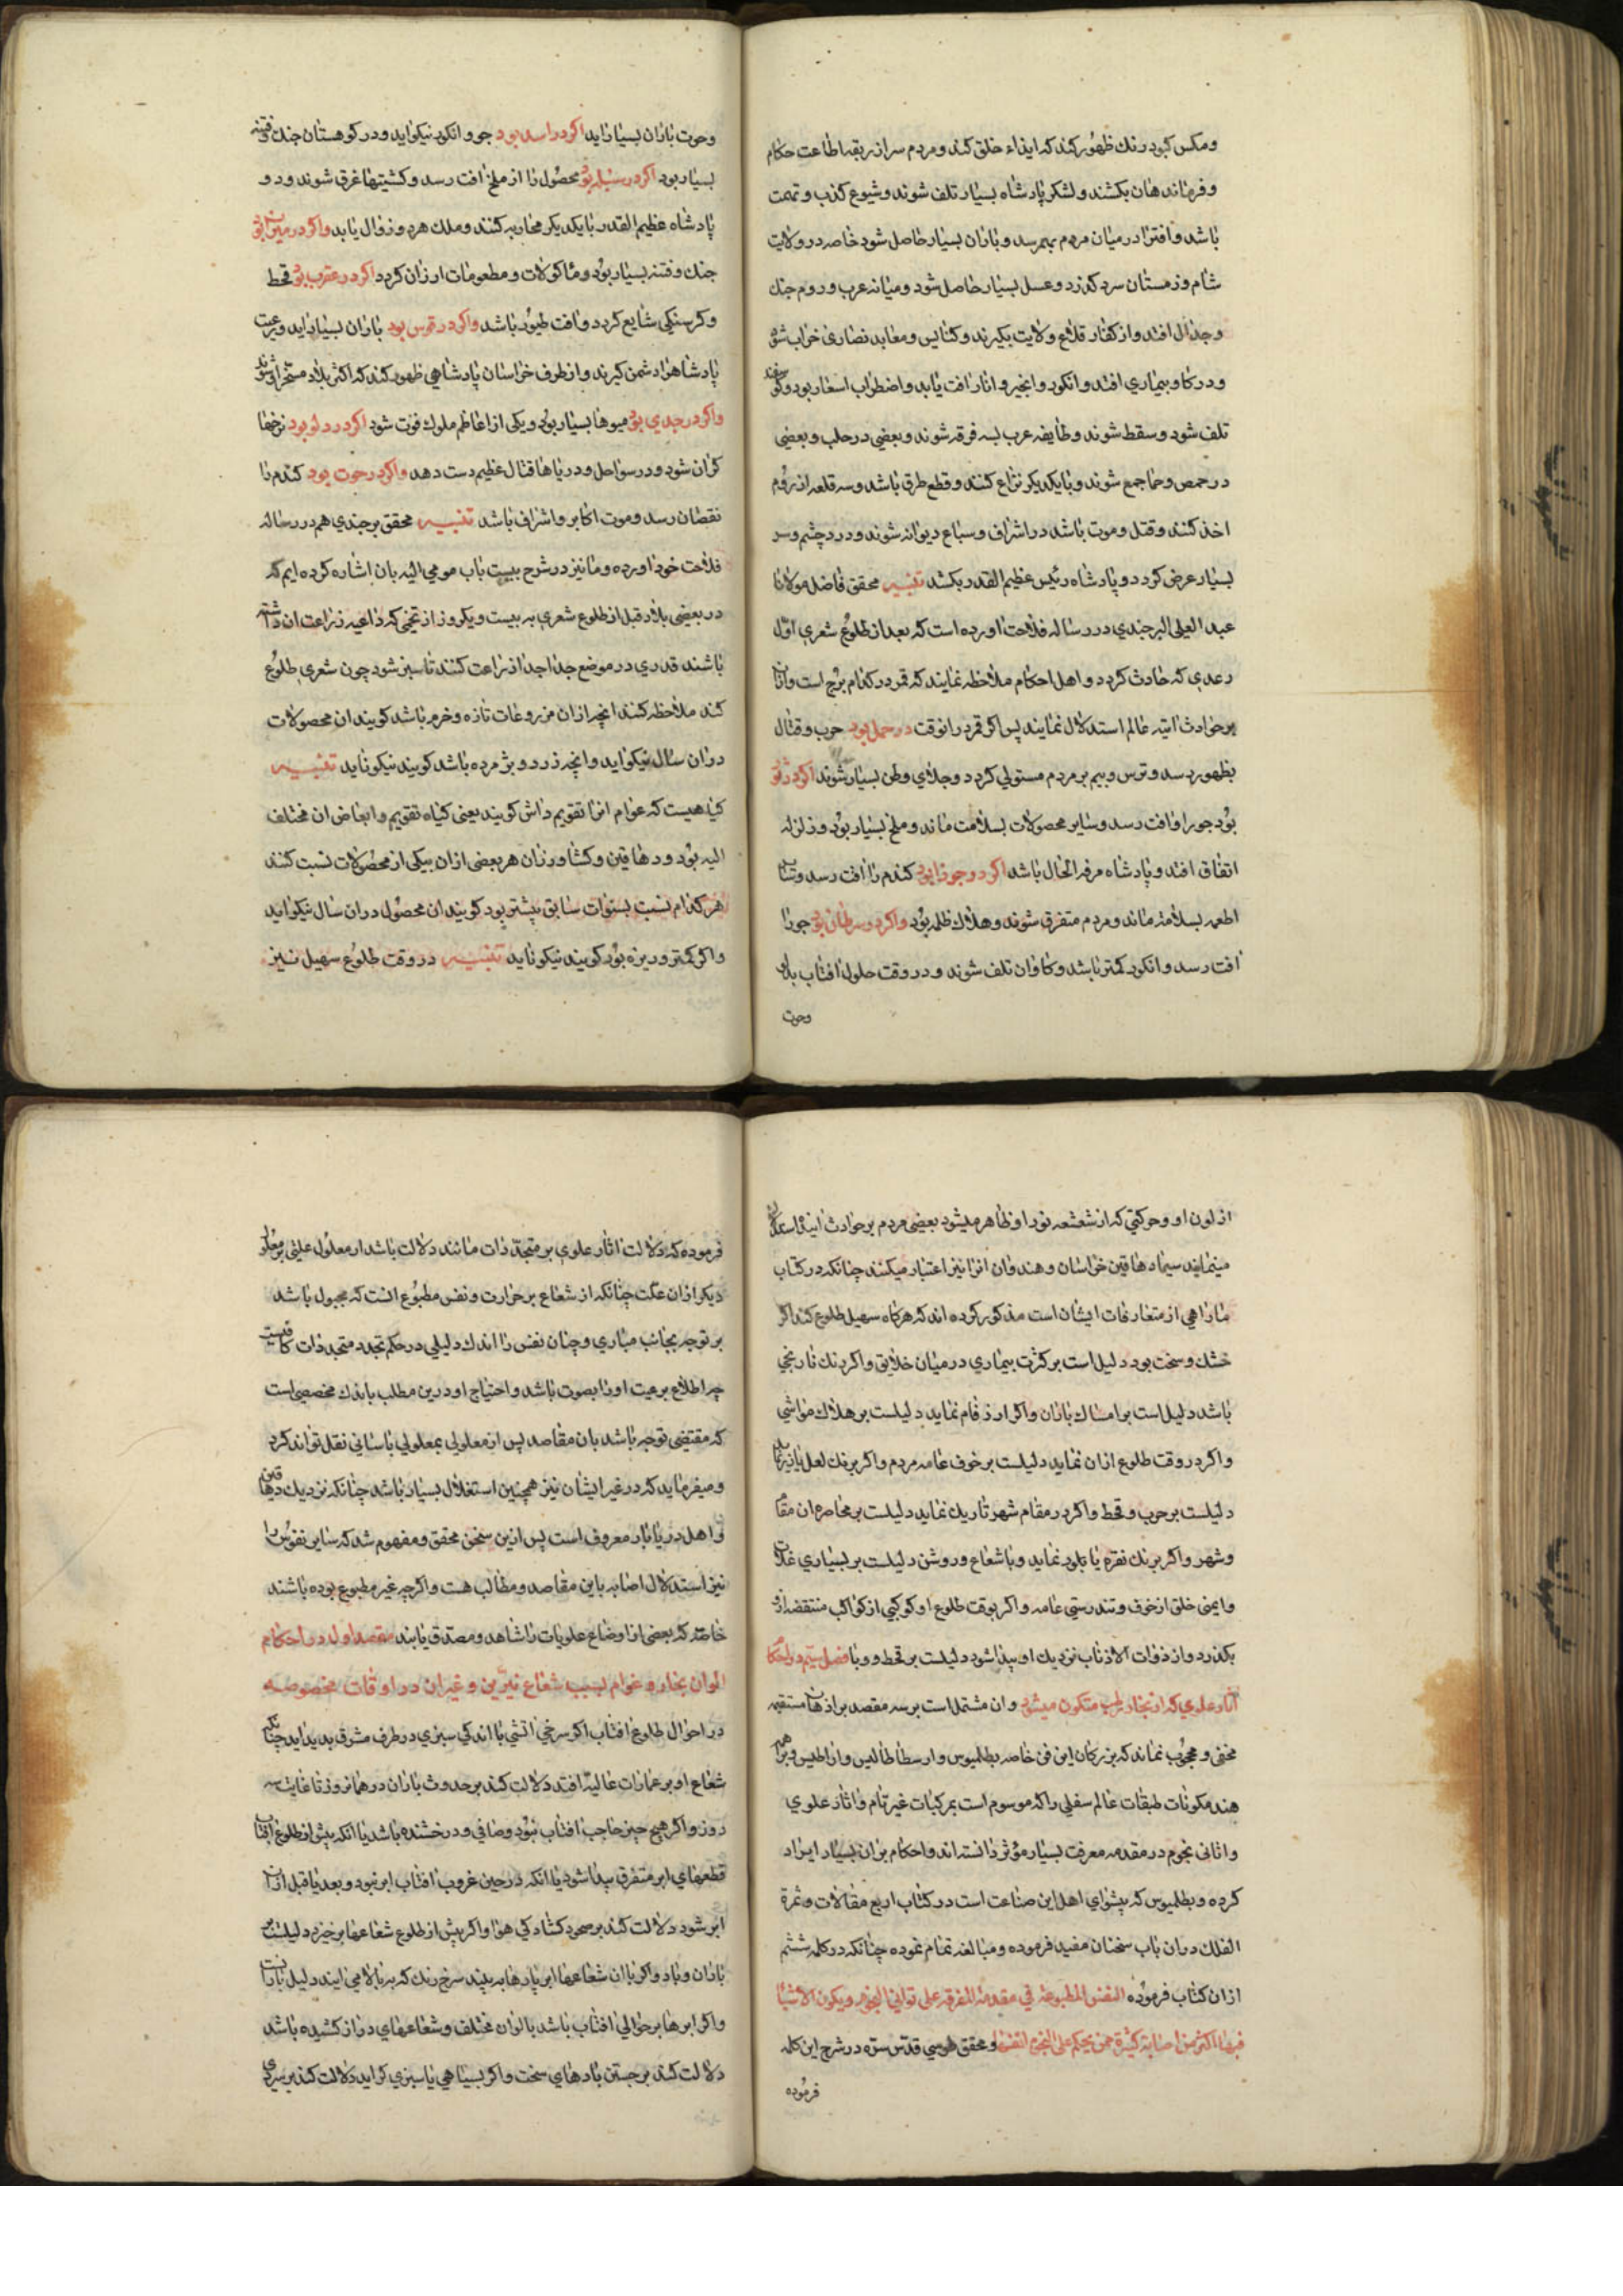 ومکس کبود رنک ظهور کند که ایذاء خلق کند و مردم سر از ربقه اطاعت حکام
و فرماندهان بکشند و لشکر پادشاه بسیار تلف شوند و شیوع کذب و تهمت
باشد و افترا در میان مردم بهم رسد و باران بسیار حاصل شود خاصه در ولایت
شام و زمستان سرد کذرد و عسل بسیار حاصل شود و میانه عرب و روم جنک
و جدال افتد و از کفار قلاع و ولایت بکیرند و کنایس و معابد نصاری خراب شود
و در کاو بیماری افتد و انکور و انجیر و انار افت یابد و اضطراب اسعار بود و کوسفند
تلف شود و سقط شوند و طایفه عرب بسه فرقه شوند و بعضی در حلب و بعضی
در حمص و حما جمع شوند و با یکدیکر نزاع کنند و قطع طرق باشد و سه قلعه از روم
اخذ کنند و قتل و موت باشد در اشراف و سباع دیوانه شوند و درد چشم و سر
بسیار عرض کردد و پادشاه رئیس عظیم القدر بکشد تنبیه محقق فاضل مولانا
عبد العلی البرجندی در رساله فلاحت اورده است که بعد از طلوع شعری اول
رعدی که حادث کردد و اهل احکام ملاحظه نمایند که قمر در کدام برج است و از ان
بر حوادث اتیه عالم استدلال نمایند پس اکر قمر در انوقت در حمل بود حرب و قتال
بظهور رسد و ترس و بیم بر مردم مستولی کردد و جلای وطن بسیار شوند اکر در ثور
بود جو را افت رسد و سایر محصولات بسلامت ماند و ملخ بسیار بود و زلزله
اتفاق افتد و پادشاه مرفه الحال باشد اکر در جوزا بود کندم را افت رسد و سایر
اطعمه بسلامة ماند و مردم متفرق شوند و هلاک ظلمه بود واکر در سرطان بود جو را
افت رسد و انکور کمتر باشد و کاوان تلف شوند و در وقت حلول افتاب بدلو
وحوت
وحوت باران بسیار اید اکر در اسد بود جو و انکور نیکو اید و در کوهستان جنک و فتنه
بسیار بود اکر در سنبله بود محصول را از ملخ افت رسد و کشتیها غرق شوند و دو
پادشاه عظیم القدر با یکدیکر محاربه کنند و ملک هر دو زوال یابد واکر در میزان بود
جنک و فتنه بسیار بود و ماکولات و مطعومات ارزان کردد اکر در عقرب بود قحط
و کرسنکی شایع کردد و افت طیور باشد واکر در قوس بود باران بسیار اید و رعیت
پادشاه را دشمن کیرند و از طرف خراسان پادشاهی ظهور کند که اکثر بلاد مستخر او شوند
واکر در جدی بود میوها بسیار بود و یکی از اعاظم ملوک فوت شود اکر در دلو بود نرخها
کران شود و در سواحل و دریاها قتال عظیم دست دهد واکر در حوت بود کندم را
نقصان رسد و موت اکابر و اشراف باشد تنبیه محقق برجندی هم در رساله
فلاحت خود اورده و ما نیز در شرح بیست باب مومی الیه بان اشاره کرده ایم که
در بعضی بلاد قبل از طلوع شعری به بیست و یکروز از تخمی که داعیه زراعت ان داشته
باشند قدری در موضع جدا جدا زراعت کنند تا سبز شود چون شعری طلوع
کند ملاحظه کنند انچه از ان مزروعات تازه و خرم باشد کویند ان محصولات
در ان سال نیکو اید و انچه زرد و پژمرده باشد کویند نیکو ناید تنبیه
کیاهیست که عوام انرا تقویم داش کویند یعنی کیاه تقویم و ابعاض ان مختلف
الیه بود و دهاقین و کشاورزان هر بعضی از ان بیکی از محصولات نسبت کنند
هر کدام نسبت بسنوات سابق بیشتر بود کویند ان محصول در ان سال نیکو اید
و اکر کمتر و ریزه بود کویند نیکو ناید تنبیه در وقت طلوع سهیل نیز
از لون او و حرکتی که از شعشعه نور او ظاهر میشود بعضی مردم بر حوادث اینده استدلال
مینمایند سیما دهاقین خراسان و هندوان انرا نیز اعتبار میکنند چنانکه در کتاب
ماراهی از متعارفات ایشان است مذکور کرده اند که هرکاه سهیل طلوع کند اکر
خشک و سخت بود دلیل است بر کثرت بیماری در میان خلایق و اکر رنک نارنجی
باشد دلیل است بر امساک باران و اکر ازرق فام نماید دلیلست بر هلاک مواشی
و اکر در وقت طلوع ازان نماید دلیلست بر خوف عامه مردم و اکر برنک لعل یا تیره نماید
دلیلست بر حرب و قحط و اکر در مقام شهر تاریک نماید دلیلست بر محاصره ان مقام
و شهر و اکر برنک نقره یا بلور نماید و باشعاع و روشن دلیلست بر بسیاری غلات
و ایمنی خلق از خوف و تندرستی عامه و اکر بوقت طلوع او کوکبی از کواکب منتقضه از او
بکذرد و از ذوات الاذناب نزدیک او پیدا شود دلیلست بر قحط و وبا فصل سیم در احکام
اثار علوی که از بخار رطب متکون میشود و ان مشتمل است بر سه مقصد بر اذهان مستقیمه
مخفی و محجوب نماند که بزرکان این فن خاصه بطلمیوس و ارسطاطالیس و از اطیس و براهمه
هند مکونات طبقات عالم سفلی را که موسوم است بمرکبات غیر تام و اثار علوی
و اثانی نجوم در مقدمه معرفت بسیار مؤثر دانسته اند و احکام بران بسیار ایراد
کرده و بطلمیوس که پیشوای اهل این صناعت است در کتاب اربع مقالات و ثمرة
الفلک دران باب سخنان مفید فرموده و مبالغه تمام نموده چنانکه در کلمه ششم
از ان کتاب فرموده النفس المطبوعة فی مقدمة المعرفه علی ثوانی النجوم ویکون الاشیاء
فیها اکثر من اصابة کثیرة ممن یحکم علی النجوم انفسها و محقق طوسی قدس سره در شرح این کلمه
فرموده
فرموده که دلالت اثار علوی بر متجددات مانند دلالت باشد از معلول علتی بر معلول
دیکر از ان علت چنانکه از شعاع بر حرارت و نفس مطبوع انست که مجبول باشد
بر توجه بجانب مباری و چنان نفس را اندک دلیلی در حکم تجدد متجددات کافیست
چه اطلاع برعیت او را بصوت باشد و احتیاج او درین مطلب باندک مخصصی است
که مقتضی توجه باشد بان مقاصد پس از معلولی بمعلولی باسانی نقل تواند کرد
و میفرماید که در غیر ایشان نیز همچنین استدلال بسیار باشد چنانکه نزدیک دهاقین
و اهل دریابار معروف است پس ازین سخن محقق و مفهوم شد که سایر نفوس را
نیز استدلال اصابه باین مقاصد و مطالب هست و اکرچه غیر مطبوع بوده باشند
خاصه که بعضی از اوضاع علویات را شاهد و مصدق یابند مقصد اول در احکام
الوان بخار و غوام بسبب شعاع نیرین و غیران در اوقات مخصوصه
در احوال طلوع افتاب اکر سرخی اتشی با اندکی سبزی در طرف مشرق پدید اید چنانکه
شعاع او بر عمارات عالیه افتد دلالت کند بر حدوث باران در همانروز تا غایت سه
روز و اکر هیچ چیز حاجب افتاب نبود و صافی و درخشنده باشد یا انکه پیش از طلوع افتاب
قطعهای ابر متفرق پیدا شود یا انکه در حین غروب افتاب ابر نبود و بعد یا قبل ازان
ابر شود دلالت کند بر صحو و کشادکی هوا و اکر پیش از طلوع شعاعها برخیزد دلیلست بر
باران و باد و اکر با ان شعاعها ابر پارها به بینند سرخ رنک که به بالا می ایند دلیل بارانست
و اکر ابرها بر حوالی افتاب باشد بالوان مختلف و شعاعهای دراز کشیده باشد
دلالت کند بر جستن بادهای سخت و اکر بسیاهی یا سبزی کراید دلالت کند بر سرمای